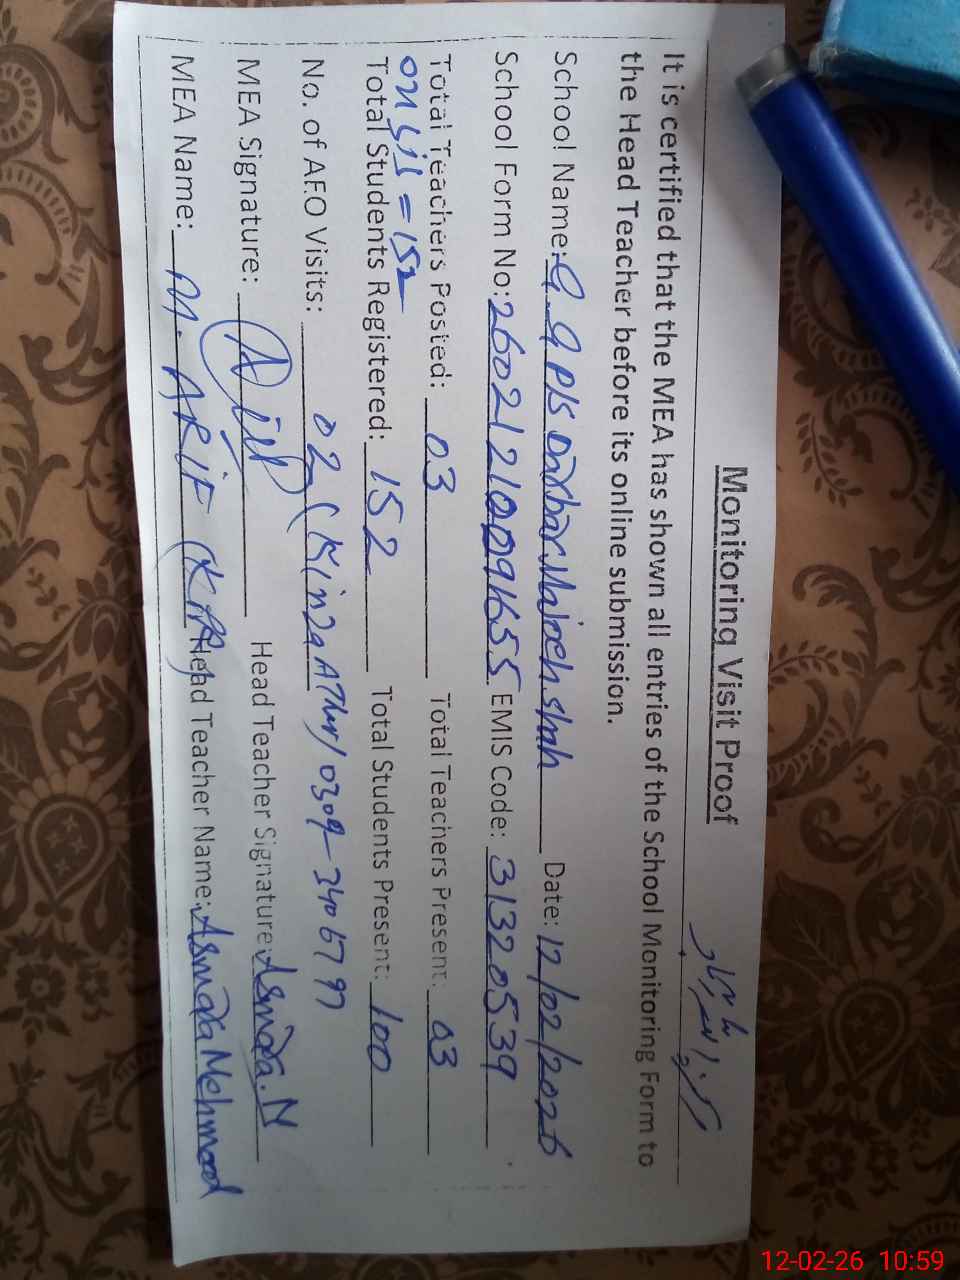 Monitoring Visit Proof
It is certified that the MEA has shown all entries of the School Monitoring Form to
the Head Teacher before its online submission.
School Name: G.GPS Darbar Date: 12/02/2026
School Form No: 26021210091655 EMIS Code: 31320539
Total Teachers Posted: 03 Total Teachers Present: 03
on Sis = 152
Total Students Registered: 152 Total Students Present: 100
No. of AEO Visits: 02 (Kinza 0309-3406797
MEA Signature: Head Teacher Signature: Asmaa.N
MEA Name: M. ARIF Head Teacher Name: Asmaa Mehmood
12-02-26 10:59